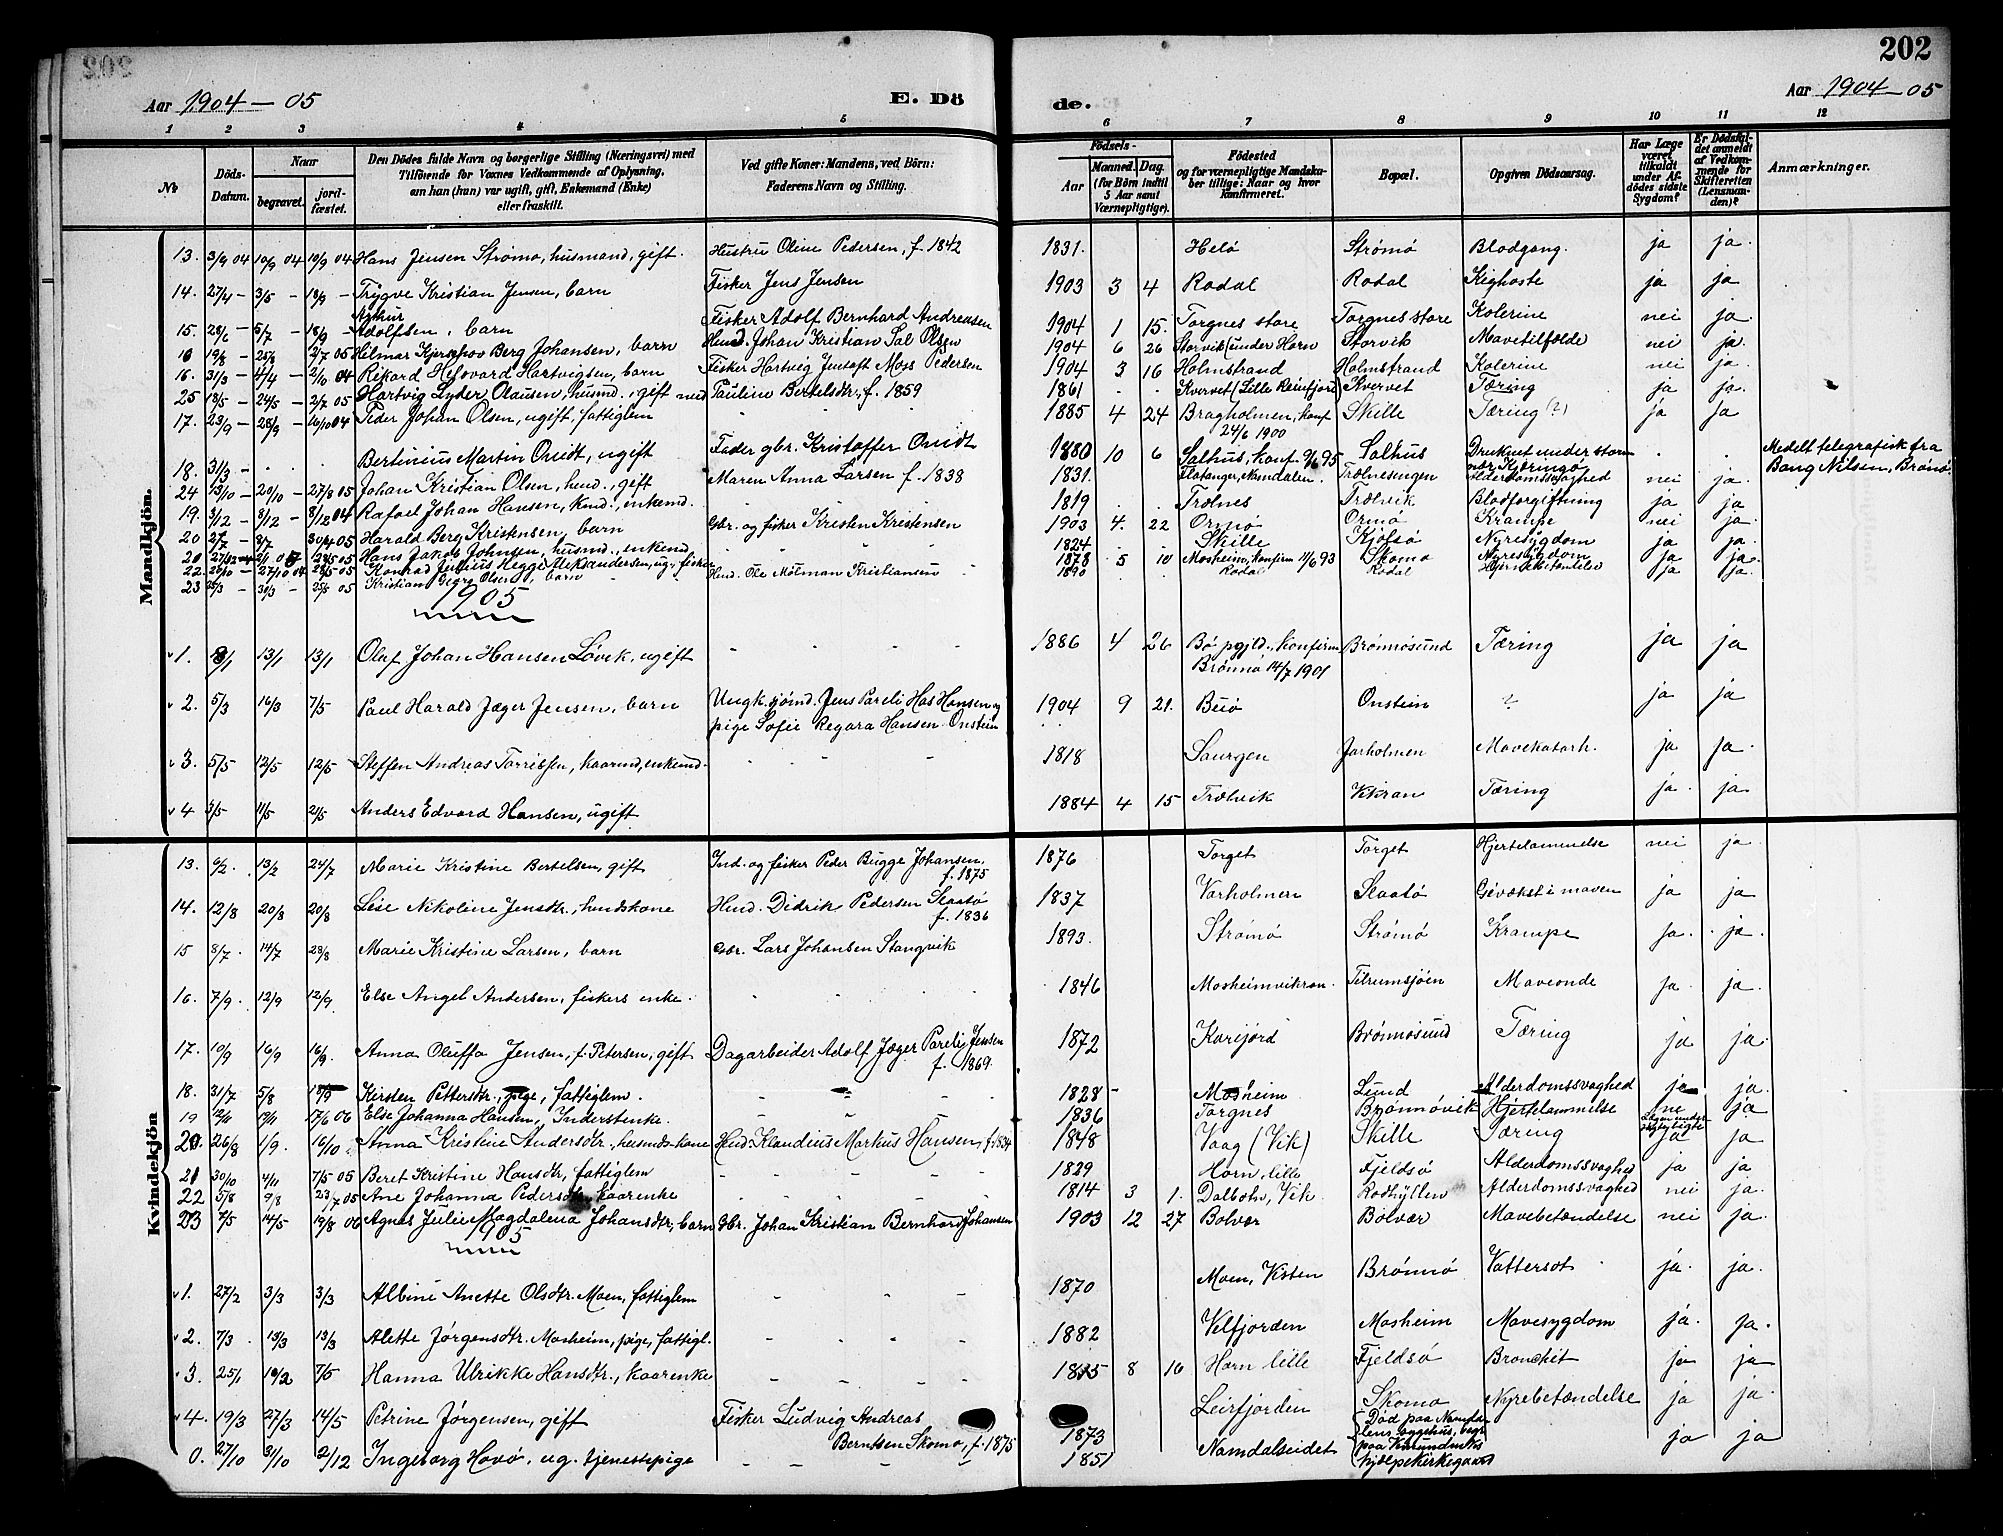 202
Aar 1904 - 05
E. Dö
de.
Aar 1904 - 05
1 2 3 4 5 6 7 8 9 10 11 12
No
Döds-Datum.
Naar
begravet.
jord-fæstet.
Den Dödes fulde Navn og borgerlige Stilling (Næringsvei) med
Tilföiende for Voxnes Vedkommende af Oplysning,
om han (hun) var ugift, gift, Enkemand (Enke)
eller fraskilt.
Ved gifte Koner: Mandens, ved Börn:
Faderens Navn og Stilling.
Födsels-
Aar
Maaned. Dag.
(for Börn indtil
5 Aar samt
Værnepligtige).
Födested
og for værnepligtige Mandska-
ber tillige: Naar og hvor
konfirmeret.
Bopæl.
Opgiven Dödsaarsag.
Har Læge
været
tilkaldt
under Af-
dödes sidste
Sygdom?
Er Dödsfal-
det anmeldt
af Vedkom-
mende for
Skifteretten
(Lensman-
den)?
Anmærkninger.
Mandkjön.
13. 3/9 04 10/9 04 10/9 04 Hans Jensen Strømø, husmand, gift. Hustru Oline Pedersen, f. 1842 1831. Helø Strømø Blodgang. ja ja.
14. 27/4 - 3/5 - 18/9 - Trygve Kristian Jensen, barn Fisker Jens Jensen 1903 3 4 Rodal Rodal Kighoste ja ja
15. 28/6 - 5/7 - 18/9 - Arthur Adolfsen, barn Fisker Adolf Bernhard Andreasen 1904 1 15. Torgnes store Torgnes store Kolerine nei ja.
19/8 - 25/8 2/7 05 Hilmar Berg Johansen, barn Johan Kristian Sal Olsen 1904 6 26 Storvik (under Horn Storvik Mavetilfælde nei ja.
16. 31/3 - 4/4 - 2/10 04 Rikard Hartvigsen, barn Fisker Hartvig Jentoft Moss Pedersen 1904 3 16 Holmstrand Holmstrand Kolerine nei ja
25 18/5 - 24/5 - 2/7 05 Hartvig Lyder Olausen, husmd., gift med Pauline Bertelsdtr., f. 1859 1861 Kvervet (Lille Reinfjord) Kvervet Tæring ja ja.
17. 23/9 - 28/9 - 26/10 04 Peder Johan Olsen, ugift, fattiglem 1885 4 24 Bragholmen, konf. 24/6 1900 Skille Tæring (?) ja ja
18. 31/3 - Bertinius Martin Qvidt, ugift Fader gbr. Kristoffer Qvidt 1880 10 6 Salhus, konf. 95 Salhus Druknet under storm nær Kjæringø Meddelt telegrafisk fra Bang Nilsen, Brønø.
24 13/10 - 20/10 - 27/8 05 Johan Kristian Olsen, husd., gift Maren Anna Larsen f. 1838 1831. Flatanger, Namdalen. Alderdomssvaghed nei ja.
19. 3/12 - 8/12 - 8/12 04 Rafael Johan Hansen, enkemd. 1819 Trælnes Trælvik Blodforgiftning ja ja
20 27/7 - 8/7 30/4 05 Harald Berg Kristensen, barn Gbr. og fisker Kristen Kristensen 1903 4. 22 Ormø Ormø Krampe nei ja
21 28/5 05 Hans Jakob Johnsen, husmd., enkemd 1824 Skille Nyresygdom ja ja.
22 - 27/10 04 28/5 05 Konrad Julius Hegge Aleksandersen, ug., fisker 1878 5 10 Mosheim, konfirm 11/6 93 Skomo Nyresygdom ja ja.
23 - 31/3 - 05 Kristian Georg Olsen, barn Husd. Ole Mølman Kristiansen 1890 Rodal Rodal Hjernebetændelse ja ja.
1905
1. 8/1 13/1 13/1 Oluf Johan Hansen Løvik, ugift 1886 4 26 Bø pgjld., konfirm Brønnø 14/7 1901 Brønnøsund Tæring ja ja
2. 5/3 16/3 7/5 Paul Harald Jæger Jensen, barn Ungk. sjømd. Jens Pareli Hansen og pige Sofie Regara Hansen Onstein 1904 9 21. Buø Onstein ? ja ja
3. 5/5 12/5 12/5 Steffen Andreas Torrissen, kaarmd, enkemd. 1818 Saurgen Jarholmen Mavekatarh. ja ja.
4 3/5 11/5 21/5 Anders Edvard Hansen, ugift 1884 4 15 Trælvik Vikran Tæring ja. ja
Kvindekjön
13. 6/2. 13/2 24/7 Marie Kristine Bertelsen, gift Ind. og fisker Peder Bugge Johansen, f. 1875 1876 Torget Torget Hjertelammelse nei ja
14. 12/8 20/8 20/8 Leie Nikoline Jensdtr., husdskone Husd. Didrik Pedersen Slaatø f. 1836 1837 Varholmen Slaatø Gevækst i maven ja ja
15 8/7 14/7 28/8 Marie Kristine Larsen, barn Gbr. Lars Johansen Stangvik 1893. Strømø Strømø Krampe ja. ja.
16. 7/9. 12/9 12/9 Else Angel Andersen, fiskers enke. 1846 Mosheimvikran Tilrumsjøen Maveonde ja. ja.
17. 10/9 16/9 16/9. Anna Oluffa Jensen, f. Petersen, gift Dagarbeider Adolf Jæger Parelij Jensen f. 1869. 1872 Karijord Brønnøsund Tæring ja ja.
18. 31/7 5/8 18/9 Kirsten Pettersdtr., pige, fattiglem. 1828 Mosheim Lund Alderdomssvaghed ja ja.
19 12/11 19/11 17/6 06 Else Johanna Hansen, Inderstenke. 1836 Torgnes Brønnøvik Hjertelammelse ne ja
20. 26/8 1/9. 16/10 Anna Kristine Andersdtr., husmdskone Husd. Klaudius Markus Hansen, f. 1834 1848 Vaag (Vik) Skille Tæring ja ja
21 30/10 4/11 7/5 05 Beret Kristine Hansdtr., fattiglem 1829 Horn, lille Fjeldsø Alderdomssvaghed ja ja
22 5/8 9/8 23/7 05 Ane Johanna Pedersdtr. kaarenke 1814 3 1. Dalbotn, Vik. Rodhyllen Alderdomssvaghed nei ja.
23 7/5 14/5 19/8 06 Agnes Julie Magdalena Johansdtr., barn Gbr. Johan Kristian Bernhard Johansen 1903 12 27 Bolvær Bolvær Mavebetændelse nei ja.
1905
1. 27/2 3/3 3/3 Albine Anette Olsdtr. Moen, fattiglem 1870 Moen, Visten Brønnø Vattersot ja. ja.
2. 7/3. 13/3 13/3 Alette Jørgensdtr. Mosheim, pige, fattigl. 1882 Velfjorden Mosheim Mavesygdom ja. ja.
3. 25/1 10/2 7/5 Hanna Ulrikke Hansdtr., kaarenke 8 16 Horn lille Fjeldsø Bronchit ja ja
4. 19/3 27/3 14/5 Petrine Jørgensen, gift Fisker Ludvig Andreas Berntsen Skomo, f. 1875 1873 Leirfjorden Skomo Nyrebetændelse ja ja.
0. 27/10 31/10 2/12 Ingeborg Hovø, ug. tjenestepige 1851 Namdalseidet Død paa Namdalens sygehus, begr. paa hjælpekirkegaard ja ja